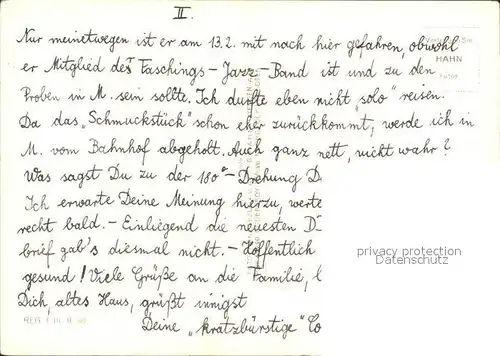 II.
Nur meinetwegen ist er am 13.2. mit nach hier gefahren, obwohl
er Mitglied des Faschings-Jazz-Band ist und zu den
Proben in M. sein sollte. Ich durfte eben nicht „solo" reisen.
Da das „Schmuckstück" schon eher zurückkommt, werde ich in
M. vom Bahnhof abgeholt. Auch ganz nett, nicht wahr?
Was sagst Du zu der 180°-Drehung
Ich erwarte Deine Meinung hierzu, werte
recht bald. - Einliegend die neuesten
brief gab's diesmal nicht. - Hoffentlich
gesund! Viele Grüße an die Familie,
Dich, altes Haus, grüßt innigst
Deine „kratzbürstige"
HAHN
privacy protection
Datenschutz